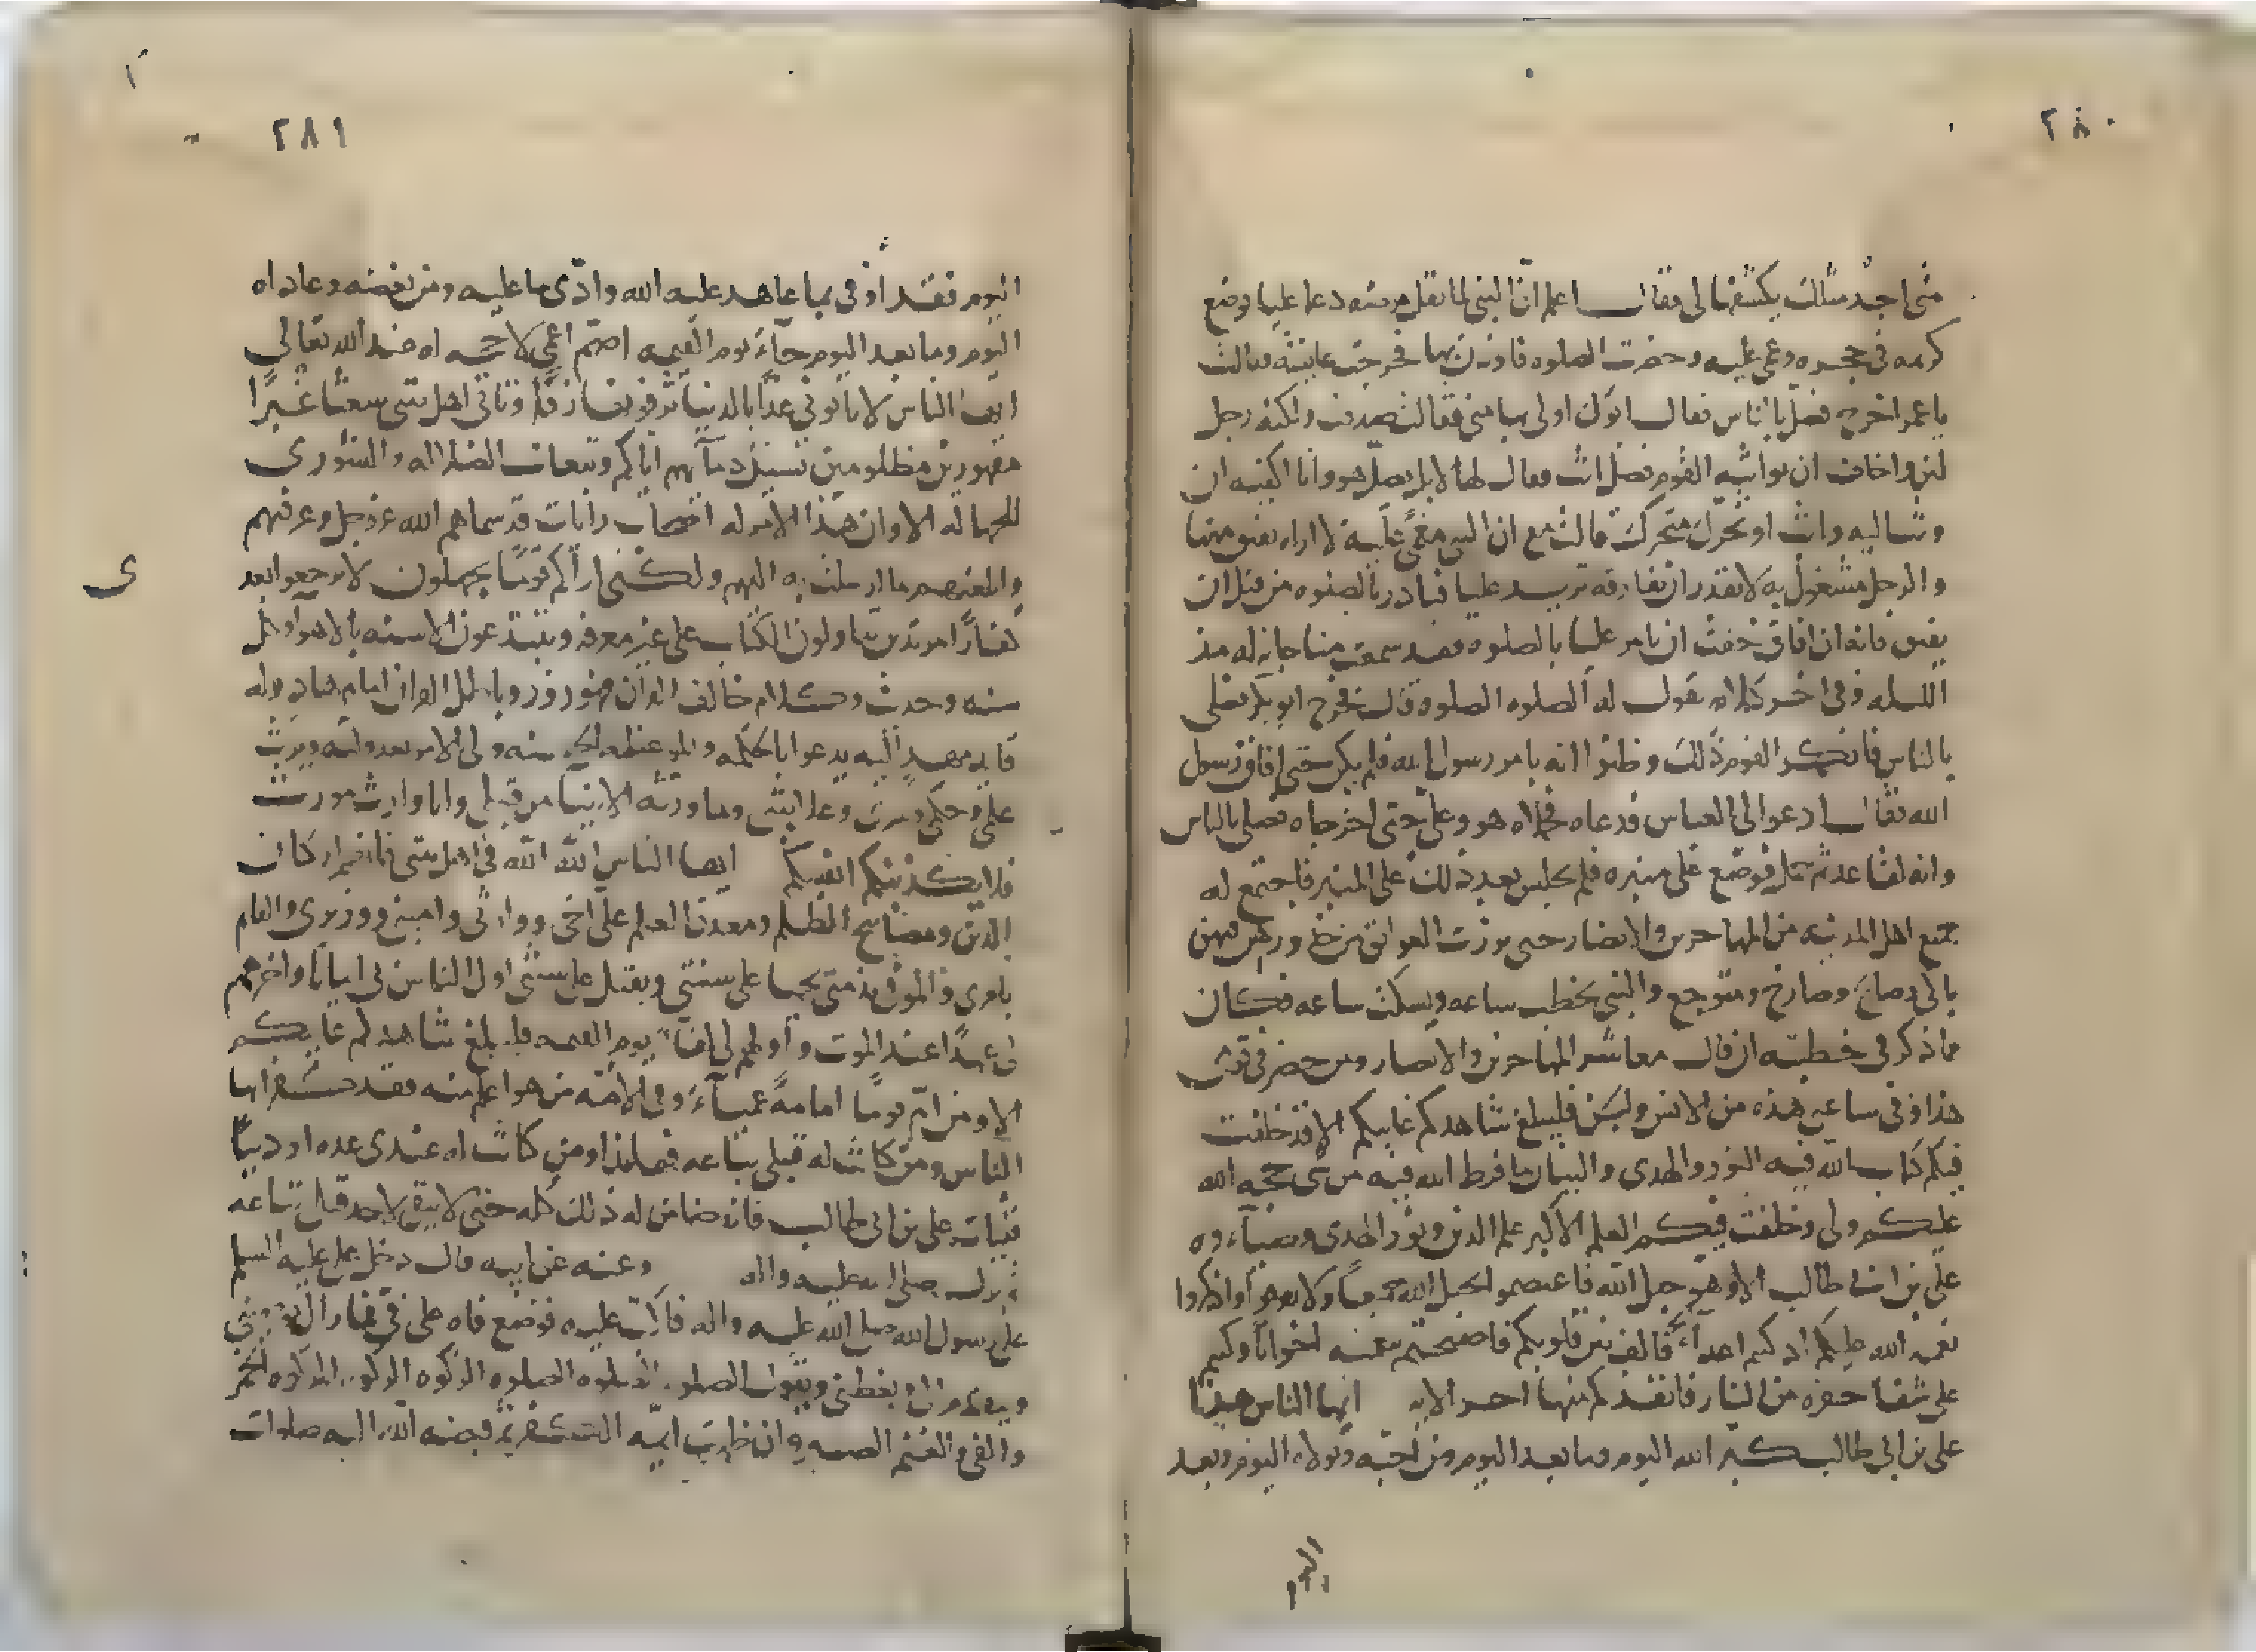 ٢٨٠
متى اجد مثلك يكشفها لى فقال اعلم ان النبى لما ثقل مرضه دعا عليا فوضع
كريمه فى حجره وغمى عليه وحضرت الصلوه فاوذن بها فخرجت عايشه فقالت
يا عمر اخرج فصل بالناس فقال ابوك اولى بها منى فقالت صدقت ولكنه رجل
لين واخاف ان يواثبه القوم فصل انت فقال لها لا بل يصلى هو وانا اكفيه ان
وثب اليه واثب او تحرك متحرك قالت مع ان النبى مغمى عليه لا اراه يفيق منها
والرجل مشغول به لا يقدر ان يفارقه تريد عليا فبادر بالصلوه من قبل ان
يفيق فانه ان افاق خفت ان يامر عليا بالصلوه فقد سمعت مناجاته له منذ
الليله وفى اخر كلامه يقول له الصلوه الصلوه قال فخرج ابو بكر يصلى
بالناس فانكر القوم ذلك وظنوا انه بامر رسول الله فلم يكبر حتى افاق رسول
الله فقال ادعوا لى العباس فدعاه فحملاه هو وعلى حتى اخرجاه فصلى بالناس
وانه لقاعد ثم حمل فوضع على منبره فلم يجلس بعد ذلك على المنبر فاجتمع له
جميع اهل المدينه من المهاجرين والانصار حتى برزت العواتق من
باكى وصايح وصارخ ومتوجع والنبى يخطب ساعه ويسكت ساعه فكان
مما ذكر فى خطبته ان قال معاشر المهاجرين والانصار ومن حضر فى
هذا وفى ساعتى هذه من الانس والجن فليبلغ شاهدكم غايبكم الا قد خلفت
فيكم كتاب الله فيه النور والهدى والبيان ما فرط الله فيه من شى حجه الله
عليكم ولى وخلفت فيكم العلم الاكبر علم الدين ونور الهدى وضياءه
على بن ابى طالب الا وهو حبل الله فاعتصموا بحبل الله جميعا ولا تفرقوا واذكروا
نعمه الله عليكم اذ كنتم اعداء فالف بين قلوبكم فاصبحتم بنعمته اخوانا وكنتم
على شفا حفره من النار فانقذكم منها اخر الايه ايها الناس هذا
على بن ابى طالب كنز الله اليوم وما بعد اليوم من احبه وتولاه اليوم وبعد
اليوم
٢٨١
اليوم فقد اوفى بما عاهد عليه الله وادى ما عليه ومن بغضه وعاداه
اليوم وما بعد اليوم جاء يوم القيمه اصم اعمى لا حجه له عند الله تعالى
ايها الناس لا تاتونى غدا بالدنيا تزفونها زفا وتاتى اهل بيتى شعثا غبرا
مقهورين مظلومين تسيل دماءهم اياكم وتبعات الضلاله والشورى
للجهاله الا وان هذا الامر له اصحاب رايات قد سماهم الله عز وجل وعرفنيهم
وابلغتهم ما ارسلت به اليهم ولكنى اراكم قوما تجهلون لا ترجعوا بعد
كفارا مرتدين تتاولون الكتاب على غير معرفه وتبتدعون السنه بالاهوآ وكل
سنه وحدث وكلام خالف القران فهو زور وباطل القران امام هاد وله
قايد يهدى اليه يدعو بالحكمه والموعظه الحسنه ولى الامر بعد وليه ويرث
على وحكمى وسرى وعلانيتى وما ورثه الانبيا من قبلى وانا وارث مورث
فلا يكذبنكم انفسكم ايها الناس الله الله فى اهل بيتى فانهم اركان
الدين ومصابيح الظلم ومعدن العلم على اخى ووارثى وامينى ووزيرى والقايم
بامرى والموفى بذمتى يحيا على سنتى ويقتل على سنتى اول الناس لى ايمانا واخرهم
لى عهدا عند الموت واولهم لى لقا يوم القيمه فليبلغ شاهدكم غايبكم
الا ومن ام قوما امامه عمياء وفى الامه من هو اعلم منه فقد كفر ايها
الناس ومن كانت له قبلى تباعه فهانذا ومن كانت له عندى عده او دينا
فليات على بن ابى طالب فانه ضامن له ذلك كله حتى لا يبقى لاحد قبلى تباعه
صلى الله عليه واله وعنه عن ابيه قال دخل على عليه السلم
على رسول الله صلى الله عليه واله فاكب عليه فوضع فاه على
ويقول الصلوه الصلوه الزكوه الزكوه
والفى والغنم
ى